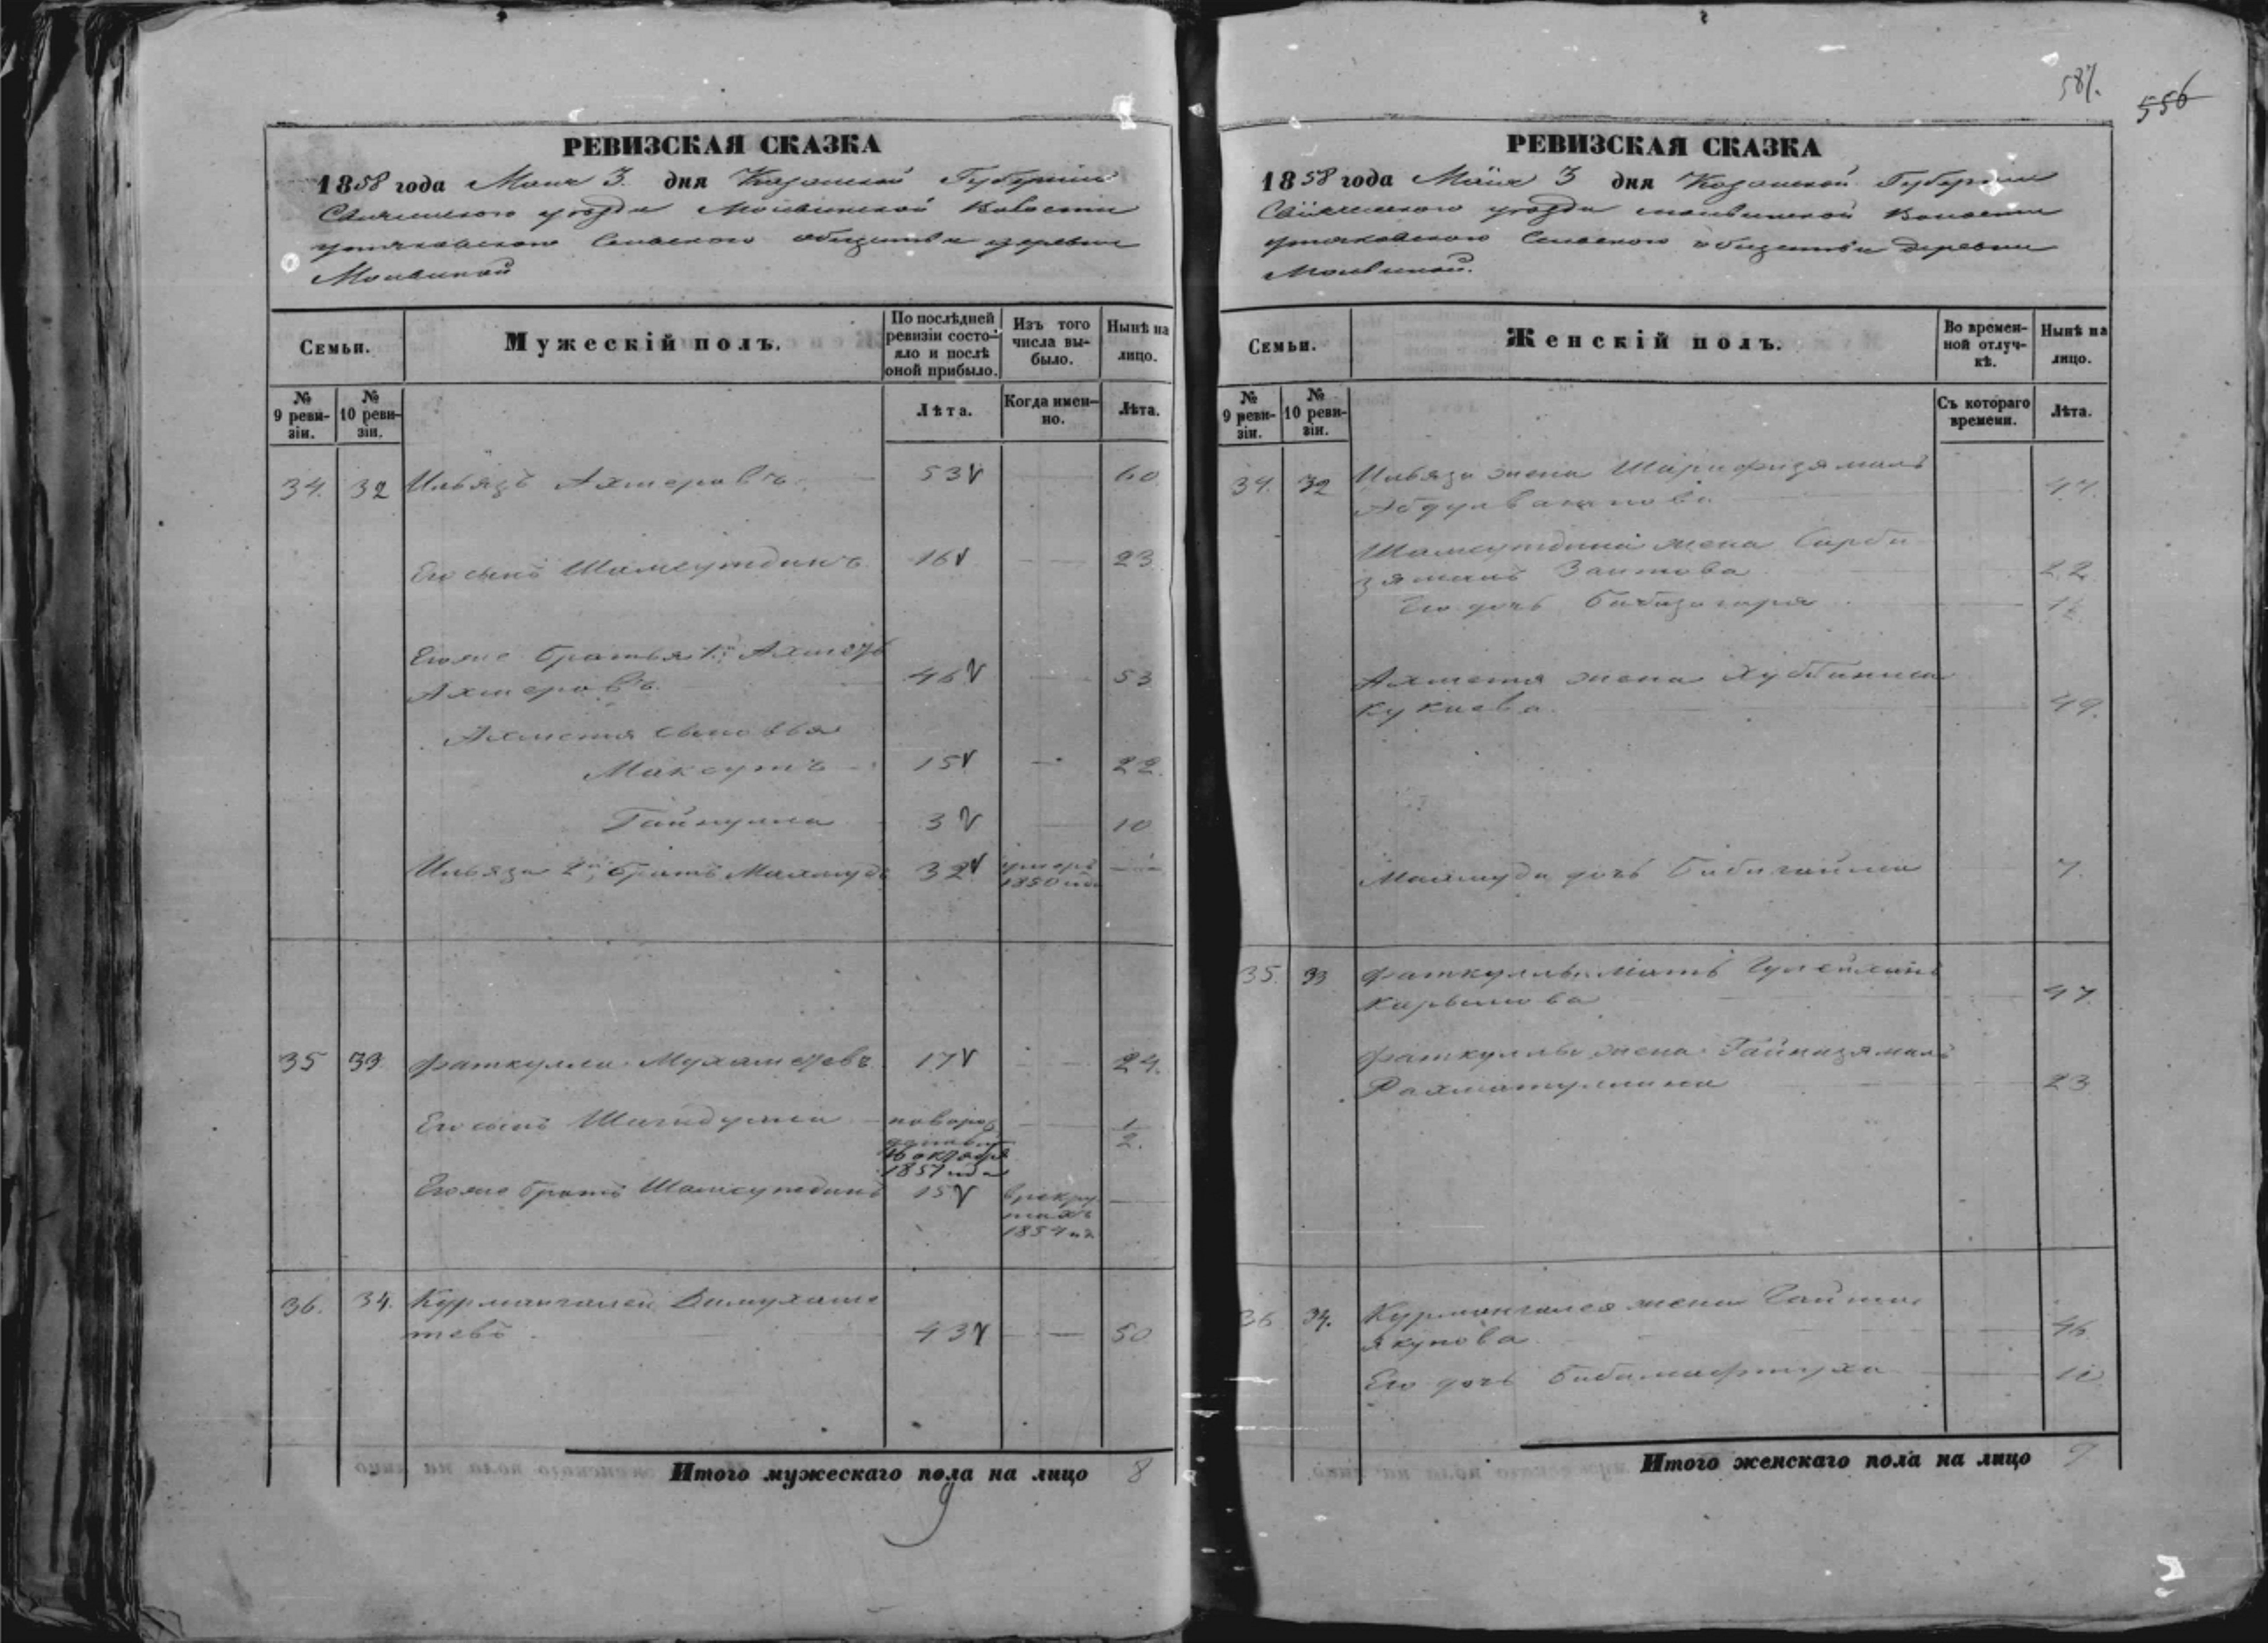 РЕВИЗСКАЯ СКАЗКА
1858 года Мая 3 дня Казанской Губернiи
Свiяжскаго уѣзда Моливинской Волости
Утяковскаго Сельскаго общества деревни
Моливиной
Семьи.
Мужескiй полъ.
По послѣдней
ревизiи состо-
яло и послѣ
оной прибыло.
Изъ того
числа вы-
было.
Нынѣ на
лицо.
№
9 реви-
зiи.
№
10 реви-
зiи.
Лѣта.
Когда имен-
но.
Лѣта.
34. 32 Ильязъ Ахмеровъ 53 60
Его сынъ Шамсутдинъ 16 23
Его же братья 1й Ахметъ
Ахмеровъ 46 53
Ахметя сыновья
Максутъ 15 22
Гайнулла 3 10
Ильяза 2й братъ Махмудъ 32 умеръ
1850 года
35 33 Фаткулла Мухаметевъ 17 24.
Его сынъ Шагидулла новорож
денный
16 октября
1857 года
1/2.
Его же братъ Шамсутдинъ 15 в рекру
тахъ
1854 го
36. 34. Курмангалей Бимухаме
тевъ 43 50
Итого мужескаго пола на лицо 8
587.
556
РЕВИЗСКАЯ СКАЗКА
1858 года Маiя 3 дня Казанской Губернiи
Свiяжскаго уѣзда Моливинской Волости
Утяковскаго Сельскаго общества деревни
Моливиной.
Семьи.
Женскiй полъ.
Во времен-
ной отлуч-
кѣ.
Нынѣ на
лицо.
№
9 реви-
зiи.
№
10 реви-
зiи.
Съ котораго
времени.
Лѣта.
34. 32 Ильяза жена Шарифзямаль
47.
Шамсутдина жена Сарби
зямаль Заитова 22
Его дочь
Ахметя жена Хуббиниса
Кукаева 49.
Махмуда дочь Бибигайша 7.
35. 33 Фаткуллы мать
47.
Фаткуллы жена Гайнизямаль
Рахматуллина 23
36 34. Курмангалея жена
Якупова 46
Его дочь Бибимафтуха 10
Итого женскаго пола на лицо 9